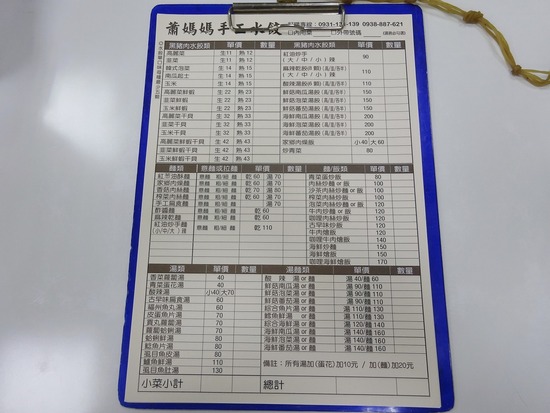 蕭媽媽手工水餃
0938-887-621
□內用桌 □外帶號碼
黑豬肉水餃類 單價 數量
高麗菜 生11 熟12
韭菜 生11 熟12
韓式泡菜 生14 熟15
南瓜起士 生14 熟15
玉米 生14 熟15
高麗菜鮮蝦 生22 熟23
韭菜鮮蝦 生22 熟23
玉米鮮蝦 生22 熟23
高麗菜干貝 生32 熟33
韭菜干貝 生32 熟33
玉米干貝 生32 熟33
高麗菜鮮蝦干貝 生42 熟43
韭菜鮮蝦干貝 生42 熟43
玉米鮮蝦干貝 生42 熟43
黑豬肉水餃類 單價 數量
紅油炒手
(大/中/小)辣 90
110
鮮菇南瓜湯餃
鮮菇泡菜湯餃
鮮菇番茄湯餃
海鮮南瓜湯餃 200
海鮮泡菜湯餃 200
海鮮番茄湯餃 200
家鄉肉燥飯 小40/大60
炒青菜 80
麵類 意麵或拉麵 單價 數量
紅蔥油酥麵 意麵 粗/細 麵 乾60 湯70
家鄉肉燥麵 意麵 粗/細 麵 乾60 湯70
香菇肉絲麵 意麵 粗/細 麵 乾70 湯80
榨菜肉絲麵 意麵 粗/細 麵 乾70 湯80
手工扁食麵 意麵 粗/細 麵 湯70
酢醬麵 意麵 粗/細 麵 乾60
麻辣乾麵 意麵 粗/細 麵 乾60
紅油炒手麵
(小/中/大)辣 意麵 粗/細 麵 乾110
麵/飯類 單價 數量
青菜蛋炒飯 80
肉絲炒麵 or 飯 100
沙茶肉絲炒麵 or 飯 100
榨菜肉絲炒麵 or 飯 100
泡菜肉絲炒麵 or 飯 100
牛肉炒麵 or 飯 120
咖哩肉絲炒麵 or 飯 120
古早味炒飯 120
牛肉燴飯 120
咖哩牛肉燴飯 140
海鮮炒麵 120
海鮮燴飯 150
咖哩海鮮燴飯 170
湯類 單價 數量
香菜蘿蔔湯 40
青菜蛋花湯 40
酸辣湯 小40/大70
古早味扁食湯 60
福州魚丸湯 60
皮蛋魚片湯 70
貢丸蘿蔔湯 70
蘿蔔蛤蜊湯 70
蛤蜊鮮湯 70
鯰魚片湯 70
虱目魚皮湯 80
鱸魚鮮湯 110
虱目魚肚湯 130
湯麵類 單價 數量
酸辣湯 or 麵 湯40/麵60
鮮菇南瓜湯 or麵 湯90/麵110
鮮菇泡菜湯 or麵 湯90/麵110
鮮菇番茄湯 or麵 湯90/麵110
綜合魚片湯 or麵 湯110/麵130
鱈魚鮮湯 or麵 湯110/麵130
綜合海鮮湯 or麵 湯120/麵140
海鮮南瓜湯 or麵 湯140/麵160
海鮮泡菜湯 or麵 湯140/麵160
海鮮番茄湯 or麵 湯140/麵160
備註：所有湯加(蛋花)加10元 / 加(麵)加20元
小菜小計
總計